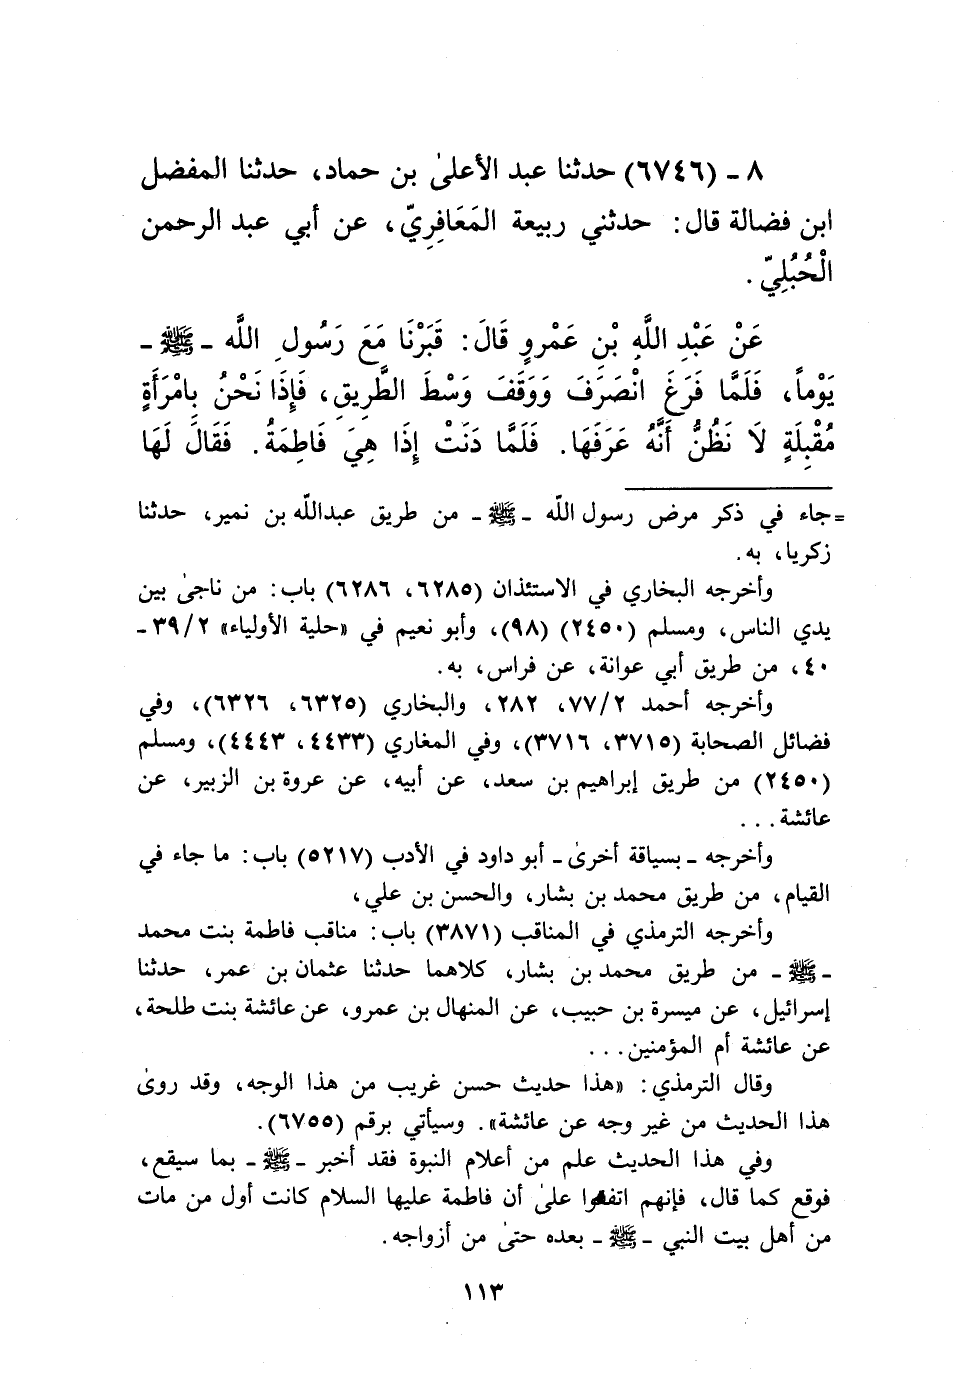 ٨ - (٦٧٤٦) حدثنا عبد الأعلىٰ بن حماد، حدثنا المفضل
ابن فضالة قال: حدثني ربيعة المَعَافِرِيّ، عن أبي عبد الرحمن
الْحُبُلِيّ.
عَنْ عَبْدِ اللَّهِ بْنِ عَمْرٍو قَالَ: قَبَرْنَا مَعَ رَسُولِ اللَّه - ﷺ -
يَوْماً، فَلَمَّا فَرَغَ انْصَرَفَ وَوَقَفَ وَسْطَ الطَّرِيقِ، فَإِذَا نَحْنُ بِامْرَأَةٍ
مُقْبِلَةٍ لَا نَظُنُّ أَنَّهُ عَرَفَهَا. فَلَمَّا دَنَتْ إِذَا هِيَ فَاطِمَةُ. فَقَالَ لَهَا
= جاء في ذكر مرض رسول اللّه - ﷺ - من طريق عبدالله بن نمير، حدثنا
زكريا، به.
وأخرجه البخاري في الاستئذان (٦٢٨٥، ٦٢٨٦) باب: من ناجىٰ بين
يدي الناس، ومسلم (٢٤٥٠) (٩٨)، وأبو نعيم في «حلية الأولياء» ٣٩/٢ -
٤٠، من طريق أبي عوانة، عن فراس، به.
وأخرجه أحمد ٧٧/٢، ٢٨٢، والبخاري (٦٣٢٥، ٦٣٢٦)، وفي
فضائل الصحابة (٣٧١٥، ٣٧١٦)، وفي المغاري (٤٤٣٣، ٤٤٤٣)، ومسلم
(٢٤٥٠) من طريق إبراهيم بن سعد، عن أبيه، عن عروة بن الزبير، عن
عائشة...
وأخرجه - بسياقة أخرىٰ - أبو داود في الأدب (٥٢١٧) باب: ما جاء في
القيام، من طريق محمد بن بشار، والحسن بن علي،
وأخرجه الترمذي في المناقب (٣٨٧١) باب: مناقب فاطمة بنت محمد
- ﷺ - من طريق محمد بن بشار، كلاهما حدثنا عثمان بن عمر، حدثنا
إسرائيل، عن ميسرة بن حبيب، عن المنهال بن عمرو، عن عائشة بنت طلحة،
عن عائشة أم المؤمنين...
وقال الترمذي: «هذا حديث حسن غريب من هذا الوجه، وقد روىٰ
هذا الحديث من غير وجه عن عائشة». وسيأتي برقم (٦٧٥٥).
وفي هذا الحديث علم من أعلام النبوة فقد أخبر - ﷺ - بما سيقع،
فوقع كما قال، فإنهم اتفقوا علىٰ أن فاطمة عليها السلام كانت أول من مات
من أهل بيت النبي - ﷺ - بعده حتىٰ من أزواجه.
١١٣